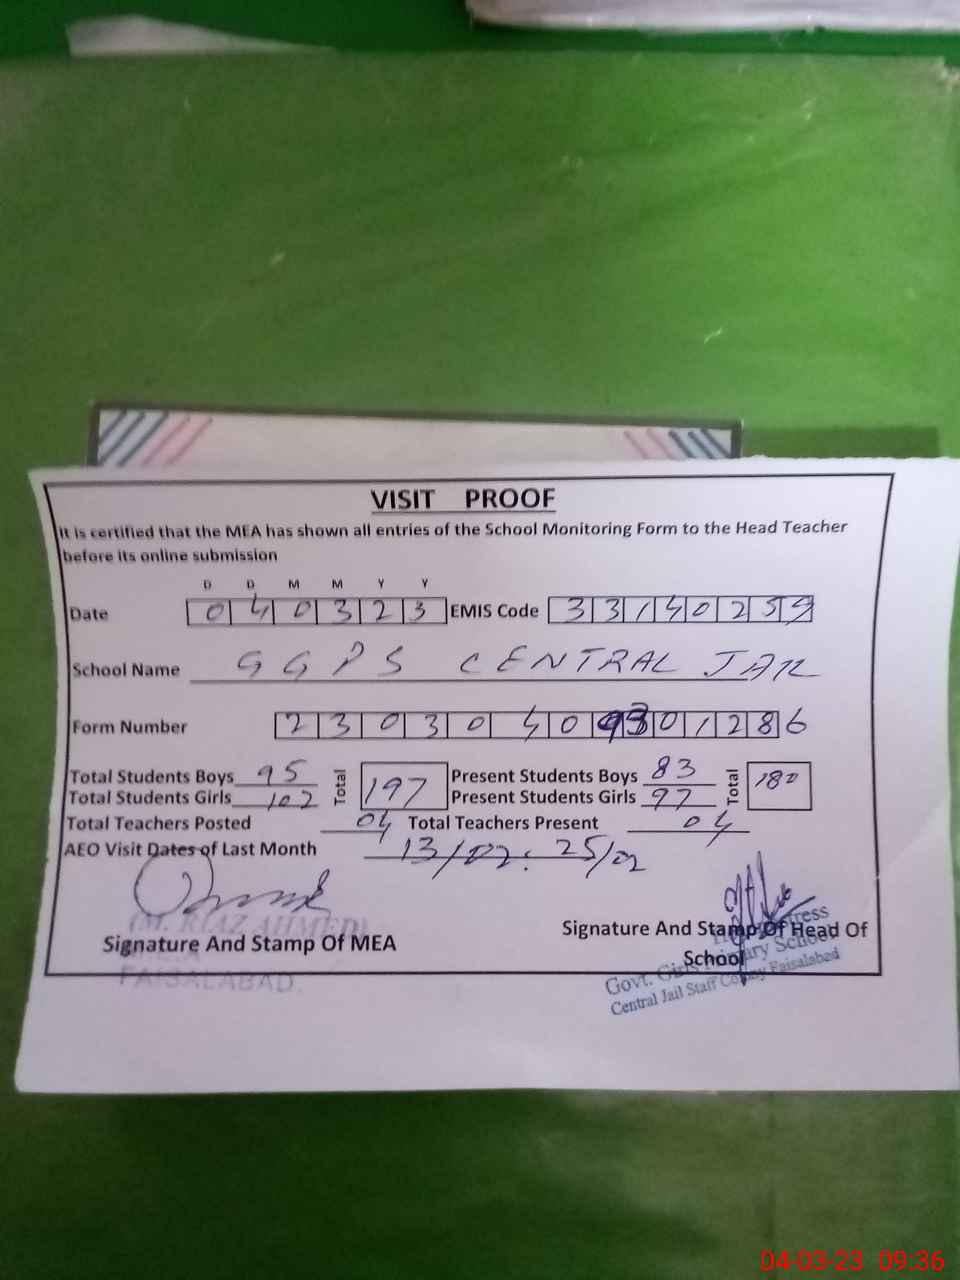 VISIT PROOF
It is certified that the MEA has shown all entries of the School Monitoring Form to the Head Teacher
before its online submission
D D M M Y Y
Date 0 4 0 3 2 3 EMIS Code 3 3 1 4 0 2 5 9
School Name GGPS CENTRAL JAIL
Form Number 2 3 0 3 0 4 0 9 3 0 1 2 8 6
Total Students Boys 95 Total 197 Present Students Boys 83 Total 180
Total Students Girls 102 Present Students Girls 97
Total Teachers Posted 04 Total Teachers Present 04
AEO Visit Dates of Last Month 13/02: 25/02
(M. RIAZ AHMED)
Signature And Stamp Of MEA
FAISALABAD.
Signature And Stamp Of Head Of
School
Govt. Girls Primary School
Central Jail Staff Colony Faisalabad
04-03-23 09:36